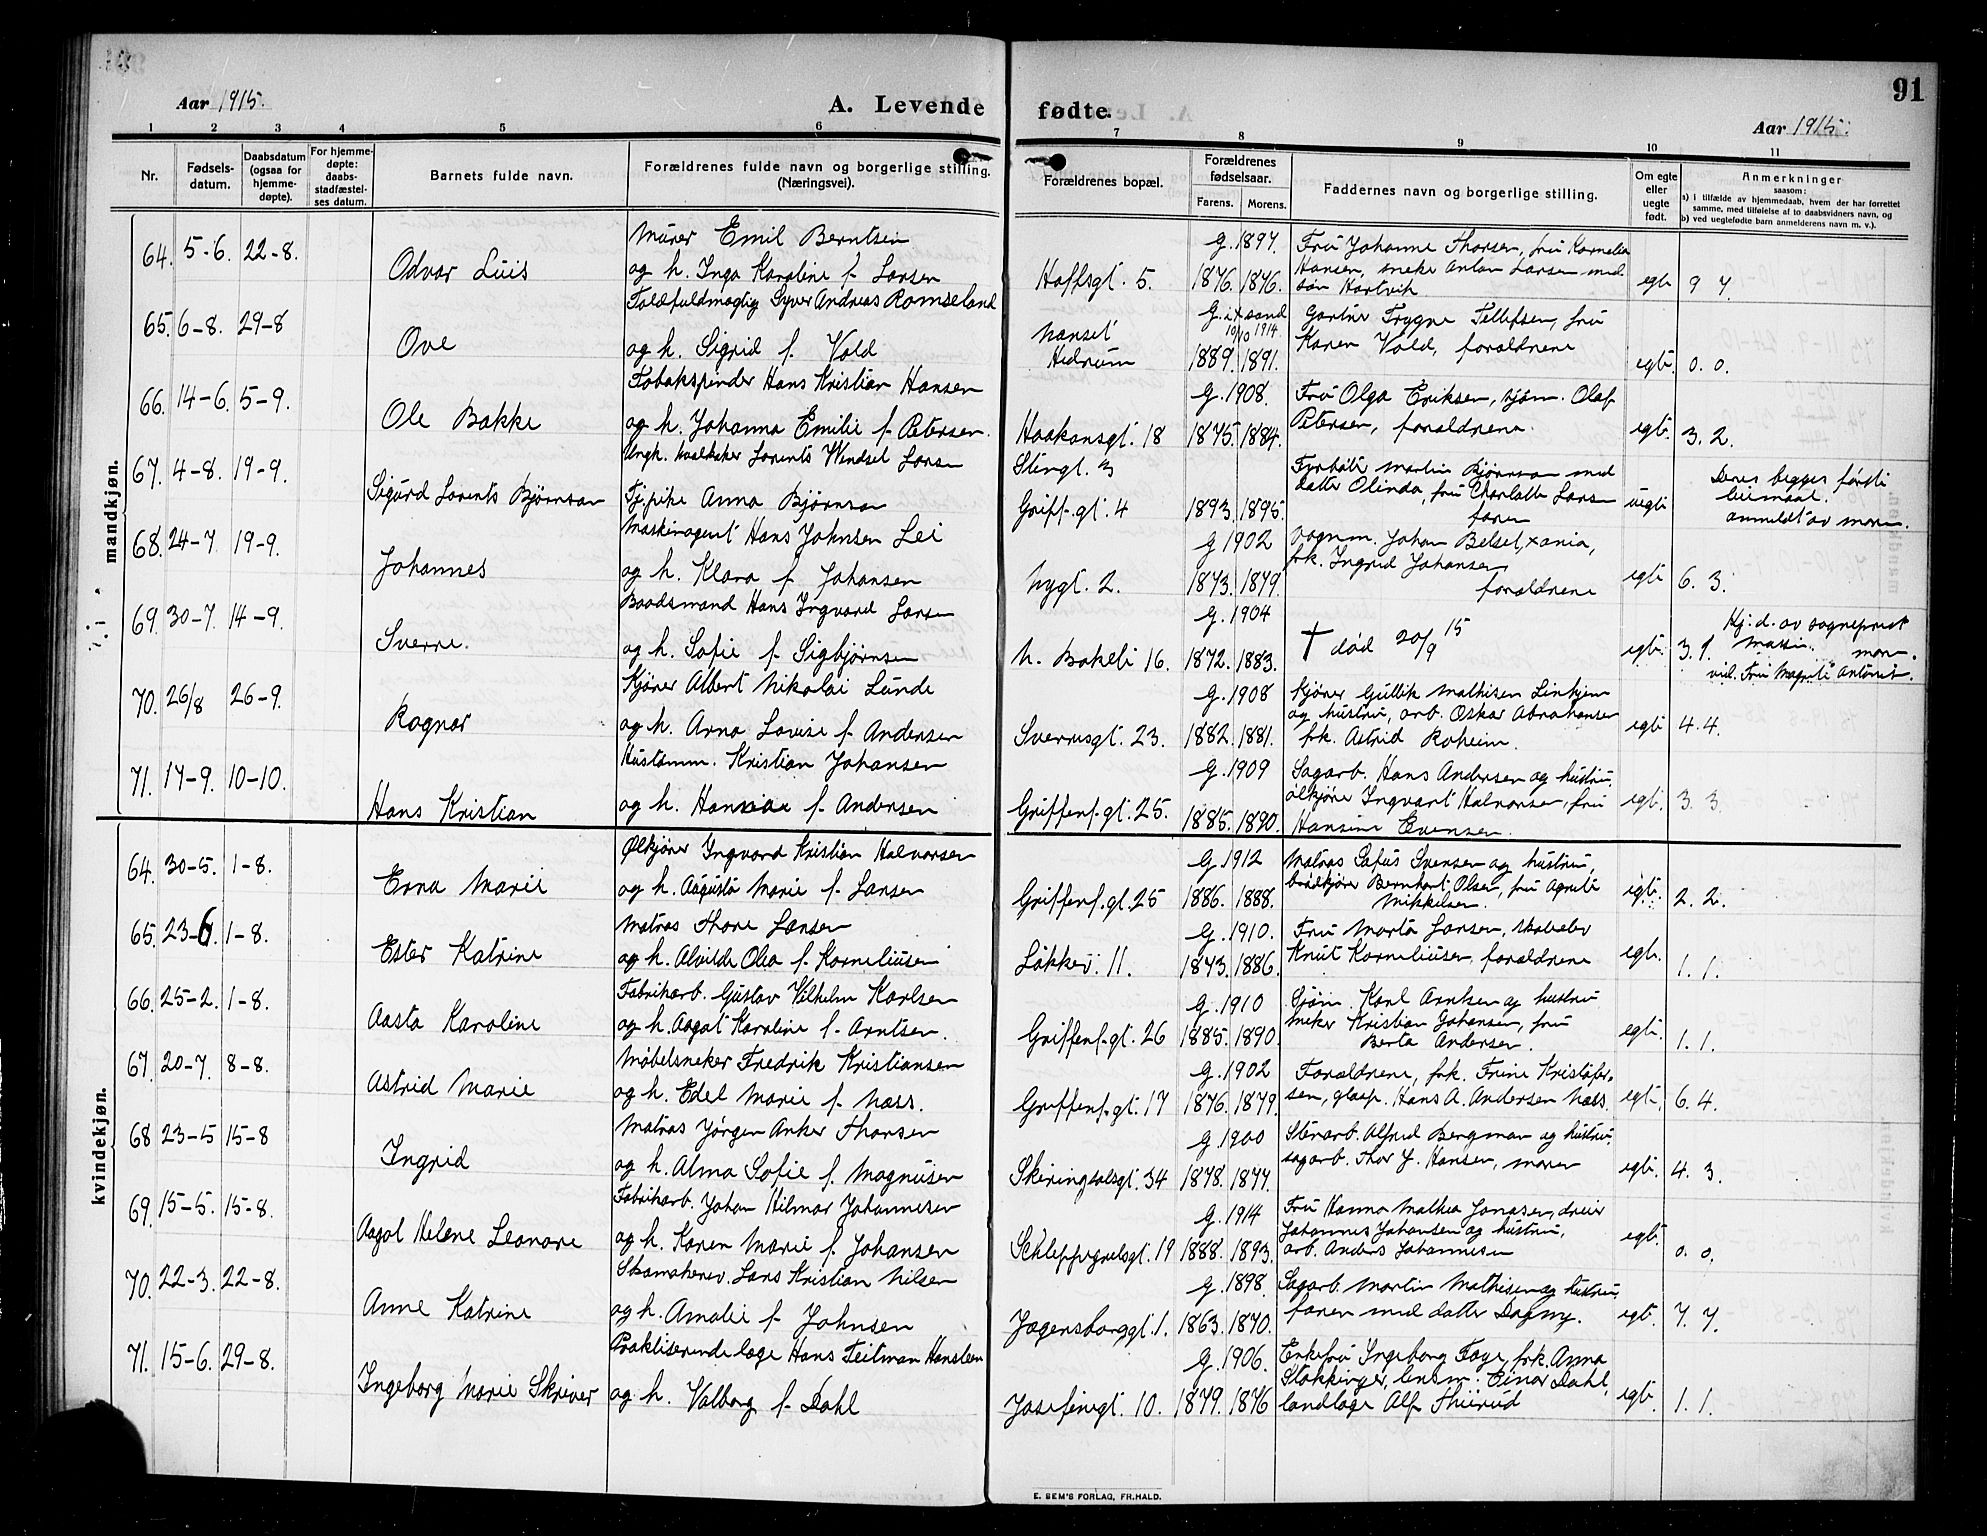 91
Aar 1915.
A. Levende
fødte.
Aar 1915.
1 2 3 4 5 6 7 8 9 10 11
Nr.
Fødsels-
datum.
Daabsdatum
(ogsaa for
hjemme-
døpte).
For hjemme-
døpte:
daabs-
stadfæstel-
ses datum.
Barnets fulde navn.
Forældrenes fulde navn og borgerlige stilling.
(Næringsvei).
Forældrenes bopæl.
Forældrenes
fødselsaar.
Farens. Morens.
Faddernes navn og borgerlige stilling.
Om egte
eller
uegte
født.
Anmerkninger
saasom:
a) i tilfælde av hjemmedaab, hvem der har forrettet
samme, med tilføielse af to daabsvidners navn, og
b) ved uegtefødte barn anmelderens navn m. v.).
mandkjøn.
64. 5-6. 22-8.
Odvar Luis
Murer Emil Berntsen
og h. Inga Karoline f. Larsen
Hoffsgt. 5.
G. 1897.
1876. 1876.
Fru Johanne Thorsen, fru Kornelia
Hansen, sneker Anton Larsen med
søn Hartvik
egte 9 7.
65. 6-8. 29-8
Ove
Toldfuldmægtig Syver Andreas Romseland
og h. Sigrid f. Vold
Nanset
Hedrum
G. i xsand
10/10 1914
1889. 1891.
Gartner Trygve Tellefsen, fru
Karen Vold, forældrene
egte. 0. 0.
66. 14-6. 5-9.
Ole Bakke
Tobakspinder Hans Kristian Hansen
og h. Johanna Emilie f. Petersen.
Haakonsgt. 18
G. 1908.
1875. 1884.
Fru Olga Eriksen, sjøm. Olaf
Petersen, forældrene.
egte. 3. 2.
67. 4-8. 19-9.
Sigurd Lorents Bjørnson
Ungk. hvalkoker Lorents Wendsel Larsen
Tjpike Anna Bjørnson
Stengt. 3
Griff.gt. 4
1893. 1895.
Fyrbøter Martin Bjørnson med
datter Olinda, fru Charlotte Larsen
faren
uegte
Deres begges første
leiermaal.
anmeldt av moren.
68. 24-7 19-9.
Johannes
Maskinagent Hans Johnsen Lei
og h. Klara f. Johansen
Nygt. 2.
G 1902
1873. 1879.
Vognm. Johan Belset, xania,
frk. Ingrid Johansen
forældrene
egte 6. 3.
69. 30-7. 14-9.
Sverre.
Baadsmand Hans Ingvard Larsen
og h. Sofie f. Sigbjørnsen
N. Bakeli 16.
G. 1904
1872. 1883.
† død 20/9 15
egte. 3. 1.
Hj. d. av sogneprest
moren.
vid. Fru
70. 26/8 26-9.
Ragnar
Kjører Albert Nikolai Lunde
og h. Anna Lovise f. Andersen
Sverresgt. 23.
G. 1908
1882. 1881.
Kjører Gullik Mathisen Linkjem
og hustru, arb. Oskar Abrahamsen
frk. Astrid Roheim.
egte 4. 4.
71. 17-9. 10-10.
Hans Kristian
Hustømm. Kristian Johansen
og h. Hanna f. Andersen
Griffenf.gt. 25.
G. 1909
1885. 1890.
Sagarb. Hans Andersen og hustru,
ølkjører Ingvart Halvorsen, fru
Hansine Evensen.
egte. 3. 3.
kvindekjøn.
64. 30-5. 1-8.
Erna Marie
Ølkjører Ingvard Kristian Halvorsen
og h. Augusta Marie f. Larsen
Griffenf.gt. 25
G. 1912
1886. 1888.
Matros Sofus Svensen og hustru,
brødkjører Bernhart Olsen, fru Agnete
Mikkelsen.
egte. 2. 2.
65. 23-6. 1-8.
Ester Katrine
Matros Thore Larsen
og h. Alvilde Olea f. Korneliusen
Løkkev. 11.
G. 1910.
1843. 1886.
Fru Marta Larsen, skoleelev
Knut Korneliusen, forældrene
egte. 1. 1.
66. 25-2. 1-8.
Aasta Karoline
Fabrikarb. Gustav Vilhelm Karlsen
og h. Aagot Karoline f. Arntsen.
Griffenf.gt. 26
G. 1910
1885. 1890.
Sjøm. Karl Arntsen og hustru
sneker Kristian Johansen, fru
Berta Andersen.
egte. 1. 1.
67. 20-7. 8-8.
Astrid Marie
Møbelsneker Fredrik Kristiansen
og h. Edel Marie f. Næss.
Griffenf.gt. 17
G. 1902
1876. 1879.
Forældrene, frk. Trine Kristofer-
sen, glasp. Hans A. Andersen Næss.
egte. 6. 4.
68 23-5 15-8
Ingrid
Matros Jørgen Anker Thorsen
og h. Alma Sofie f. Magnusen
Skiringsalsgt. 34
G. 1900
1878. 1877.
Stenarb. Alfred Bergman og hustru,
sagarb. Thor J. Hansen, moren
egte. 4. 3.
69. 15-5. 15-8.
Aagot Helene Leonore
Fabrikarb. Johan Hilmar Johannesen
og h. Karen Marie f. Johansen
Schleppegrelsgt. 19
G. 1914
1888. 1893.
Fru Hanna Mathea Jonasen, dreier
Johannes Johansen og hustru,
arb. Anders Johannesen
egte. 0. 0.
70. 22-3. 22-8.
Anne Katrine
Skomakerm. Lars Kristian Nilsen
og h. Amalie f. Johnsen
Jægersborggt. 1.
G. 1898.
1863. 1870.
Sagarb. Martin Mathisen og hustru,
faren med datter Dagny.
egte. 7. 7.
71. 15-6. 29-8.
Ingeborg Marie Skriver
Praktiserende læge Hans Teitman Hansteen
og h. Valborg f. Dahl
Josefinegt. 10.
G. 1906.
1879. 1876
Enkefru Ingeborg Foye, frk. Anna
Stokkinger, lensm. Einar Dahl,
landlæge Alf Thurud
egte. 1. 1.
E. SEM'S FORLAG, FR.HALD.